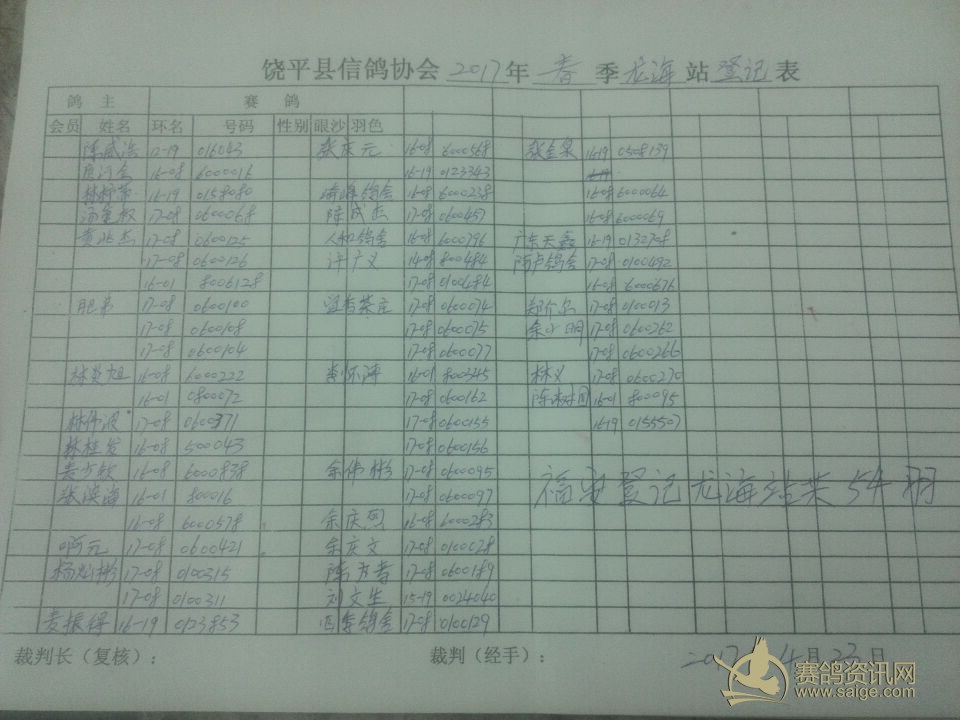 饶平县信鸽协会 2017年 春 季 龙海 站 登记 表
鸽 主 赛 鸽
会员 姓名 环名 号码 性别 眼沙 羽色
陈威浩 12-19 016043 张庆元 16-08 6000568 张金泉 16-19 0508139
16-08 6000016 16-19 0123343
16-19 0158080 鸽舍 16-08 6000238 16-08 6000064
17-08 0600068 陈成杰 17-08 0600457 16-08 6000069
黄 杰 17-08 0600125 人和鸽舍 16-08 6000796 广东天鑫 16-19 0132708
17-08 0600126 许广义 14-08 800484 鸽舍 17-08 0100492
16-01 8006128 17-08 0100684 16-08 6000676
肥弟 17-08 0600100 茶庄 17-08 0600074 17-08 0100013
17-08 0600108 17-08 0600075 余小明 17-08 0600262
17-08 0600104 17-08 0600077 17-08 0600266
林炎旭 16-08 6000222 怀涛 16-01 800345 林义 17-08 0600270
16-01 0800072 17-08 0600162 陈树国 16-01 800095
林伟波 17-08 0600371 17-08 0600155 16-19 0155507
林桂发 16-08 500043 17-08 0600156
16-08 6000838 余伟彬 17-08 0600095
张滨海 16-01 800016 17-08 0600097 福 登记龙海站共54羽
16-08 6000578 余庆烈 16-08 6000283
啊元 17-08 0600421 余庆文 17-08 0100028
杨灿彬 17-08 0100315 陈 春 17-08 0600189
17-08 0100311 刘文生 15-19 0024040
麦振得 16-19 0123853 四季鸽舍 17-08 0100129
裁判长（复核）： 裁判（经手）： 2017年4月23日
赛鸽资讯网
www.saige.com